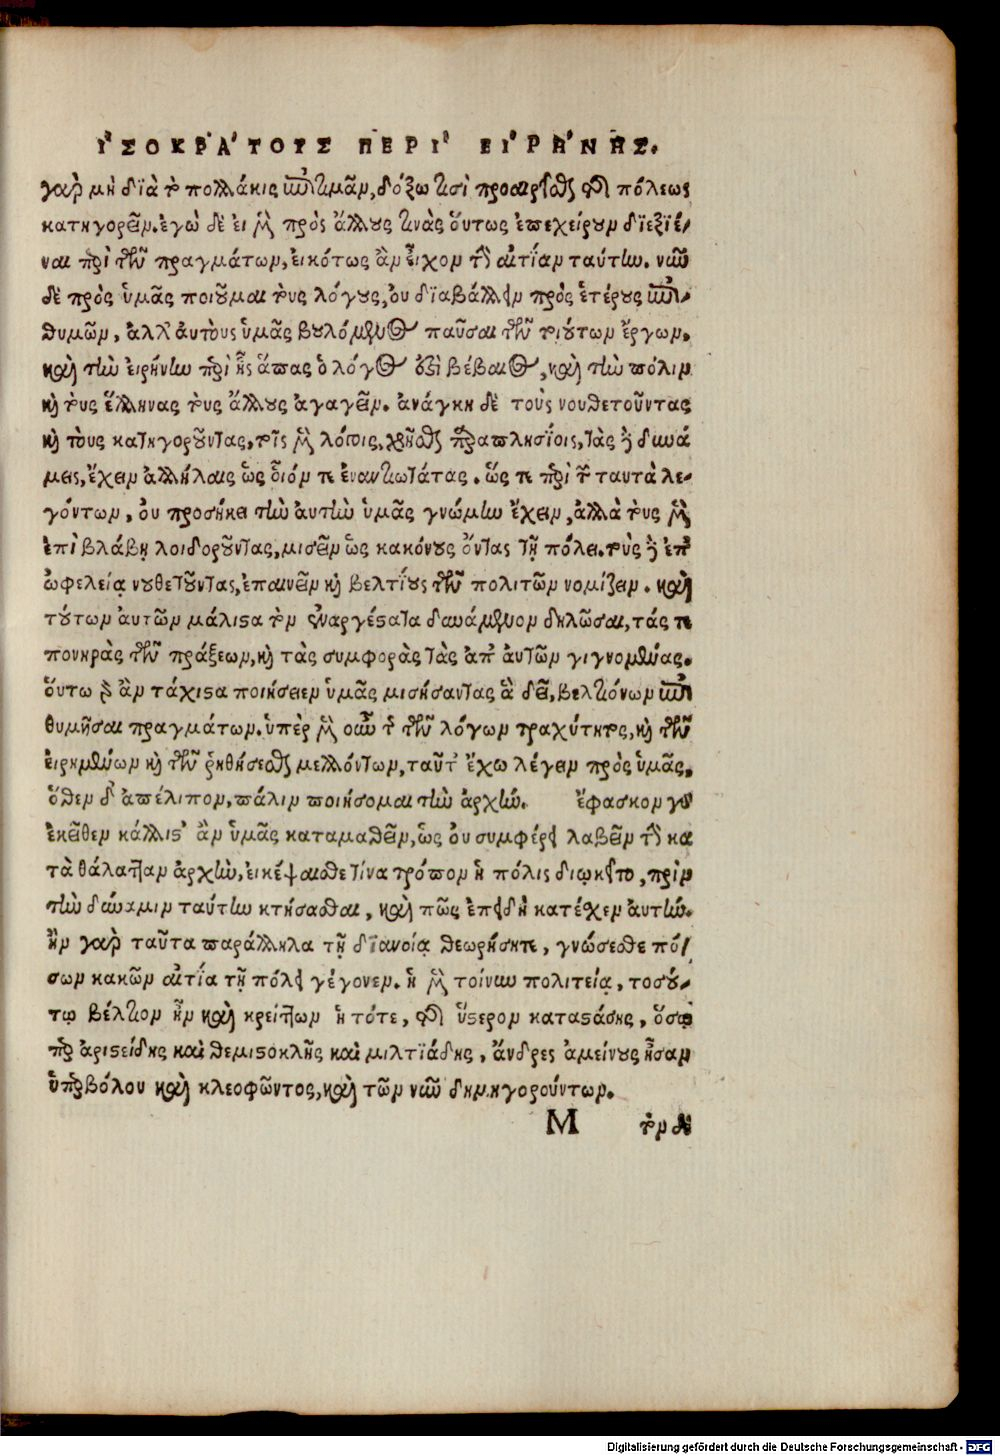 ἸΣΟΚΡΆΤΟΥΣ ΠΕΡῚ ΕἸΡΉΝΗΣ.
γὰρ μὴ διὰ τὸ πολλάκις ἐπιτιμᾶν, δόξω τισὶ προαιρεῖσθαι τῆς πόλεως
κατηγορεῖν. ἐγὼ δὲ εἰ μὲν πρὸς ἄλλους τινὰς ὅυτως ἐπεχείρουν διεξιέ-
ναι περὶ τῶν πραγμάτων, ἐικότως ἂν εἶχον τὴν ἀιτίαν ταύτην. νῦν
δὲ πρὸς ὑμᾶς ποιοῦμαι τοὺς λόγους, ὀυ διαβάλλειν πρὸς ἑτέρους ἐπι-
θυμῶν, ἀλλ' ἀυτοὺς ὑμᾶς βουλόμενος παῦσαι τῶν τοιούτων ἔργων.
καὶ τὴν ἐιρήνην περὶ ἧς ἅπας ὁ λόγος ἐστὶ βέβαιος, καὶ τὴν πόλιν
καὶ τοὺς ἕλληνας τοὺς ἄλλους ἀγαγεῖν. ἀνάγκη δὲ τοὺς νουθετοῦντας
καὶ τοὺς κατηγοροῦντας, τοῖς μὲν λόγοις, χρῆσθαι παραπλησίοις, τὰς δὲ δυνά
μεις, ἔχειν ἀλλήλαις ὡς οἷόν τε ἐναντιωτάτας. ὥς τε περὶ τῶν ταυτὰ λε-
γόντων, ὀυ προσήκει τὴν ἀυτὴν ὑμᾶς γνώμην ἔχειν, ἀλλὰ τοὺς μὲν
ἐπὶ βλάβῃ λοιδοροῦντας, μισεῖν ὡς κακόνους ὄντας τῇ πόλει. τοὺς δὲ ἐπ'
ὠφελείᾳ νουθετοῦντας, ἐπαινεῖν καὶ βελτίους τῶν πολιτῶν νομίζειν. καὶ
τούτων ἀυτῶν μάλιστα τὸν ἐναργέστατα δυνάμενον δηλῶσαι, τάς τε
πονηρὰς τῶν πράξεων, καὶ τὰς συμφορὰς τὰς ἀπ' ἀυτῶν γιγνομένας.
ὅυτω γὰρ ἂν τάχιστα ποιήσειεν ὑμᾶς μισήσαντας ἃ δεῖ, βελτιόνων ἐπι
θυμῆσαι πραγμάτων. ὑπὲρ μὲν οὖν τῆς τῶν λόγων τραχύτητος, καὶ τῶν
ἐιρημένων καὶ τῶν ῥηθήσεσθαι μελλόντων, ταῦτ' ἔχω λέγειν πρὸς ὑμᾶς.
ὅθεν δ' ἀπέλιπον, πάλιν ποιήσομαι τὴν ἀρχήν. ἔφασκον γὰρ
ἐκεῖθεν κάλλιστ' ἂν ὑμᾶς καταμαθεῖν, ὡς ὀυ συμφέρει λαβεῖν τὴν κα
τὰ θάλατταν ἀρχὴν, ἐι σκέψαισθε τίνα τρόπον ἡ πόλις διῳκεῖτο, πρὶν
τὴν δύναμιν ταύτην κτήσασθαι, καὶ πῶς ἐπειδὴ κατέσχεν ἀυτήν.
ἢν γὰρ ταῦτα παράλληλα τῇ διανοίᾳ θεωρήσητε, γνώσεσθε πό-
σων κακῶν ἀιτία τῇ πόλει γέγονεν. ἡ μὲν τοίνυν πολιτεία, τοσού-
τῳ βέλτιον ἦν καὶ κρείττων ἡ τότε, τῆς ὕστερον καταστάσης, ὅσῳ
περ ἀριστείδης καὶ θεμιστοκλῆς καὶ μιλτιάδης, ἄνδρες ἀμείνους ἦσαν
ὑπερβόλου καὶ κλεοφῶντος, καὶ τῶν νῦν δημηγορούντων.
M τὸν δὲ
Digitalisierung gefördert durch die Deutsche Forschungsgemeinschaft - DFG